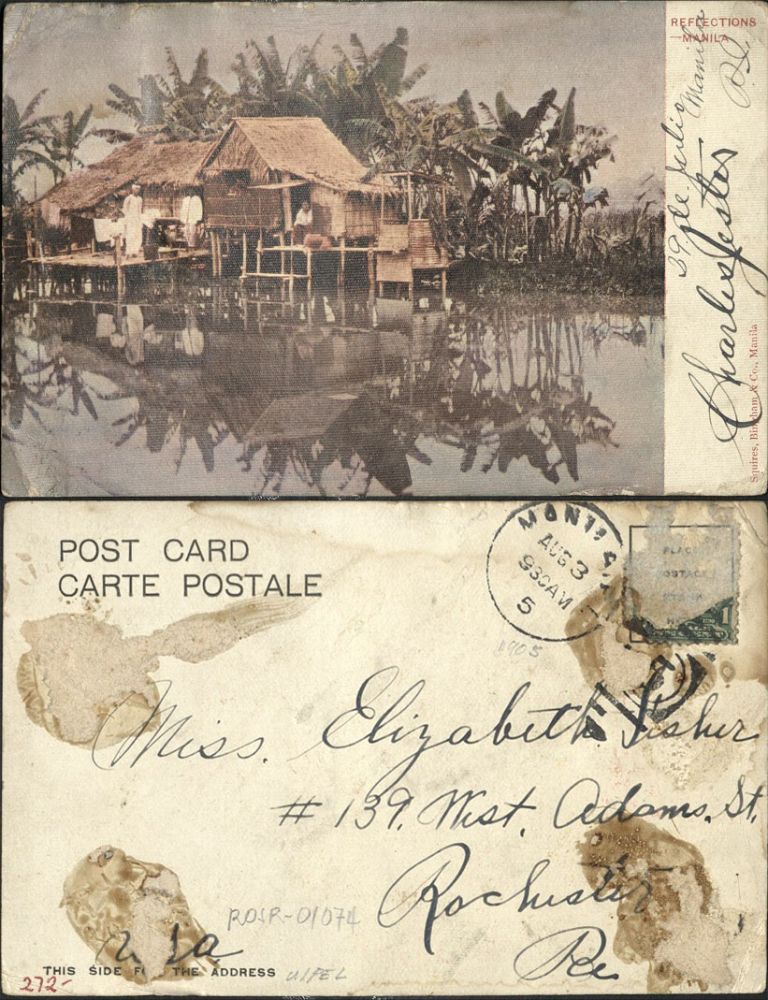 REFLECTIONS
—MANILA
39 de Julio Manila
P.I.
Charles Jester
Squires, Bingham & Co., Manila
POST CARD
CARTE POSTALE
MANILA
AUG 3
930AM
5
1905
PLACE
POSTAGE
Miss. Elizabeth Fisher
# 139, West. Adams. St,
Rochester
Pa
ROJR-01074
THIS SIDE THE ADDRESS
272-